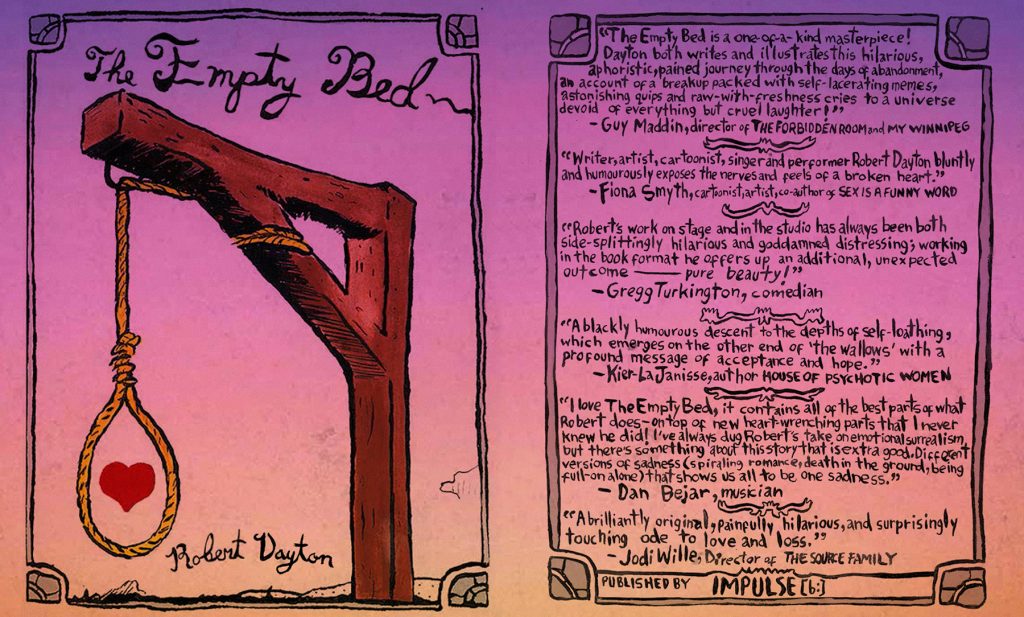 The Empty Bed
Robert Dayton
"The Empty Bed is a one-of-a-kind masterpiece!
Dayton both writes and illustrates this hilarious,
aphoristic, pained journey through the days of abandonment,
an account of a breakup packed with self-lacerating memes,
astonishing quips and raw-with-freshness cries to a universe
devoid of everything but cruel laughter!"
- Guy Maddin, director of THE FORBIDDEN ROOM and MY WINNIPEG
"Writer, artist, cartoonist, singer and performer Robert Dayton bluntly
and humourously exposes the nerves and feels of a broken heart."
- Fiona Smyth, cartoonist, artist, co-author of SEX IS A FUNNY WORD
"Robert's work on stage and in the studio has always been both
side-splittingly hilarious and goddamned distressing; working
in the book format he offers up an additional, unexpected
outcome — pure beauty!"
- Gregg Turkington, comedian
"A blackly humourous descent to the depths of self-loathing,
which emerges on the other end of 'the wallows' with a
profound message of acceptance and hope."
- Kier-La Janisse, author HOUSE OF PSYCHOTIC WOMEN
"I love The Empty Bed, it contains all of the best parts of what
Robert does - on top of new heart-wrenching parts that I never
knew he did! I've always dug Robert's take on emotional surrealism,
but there's something about this story that is extra good. Different
versions of sadness (spiraling romance, death in the ground, being
full-on alone) that shows us all to be one sadness."
- Dan Bejar, musician
"A brilliantly original, painfully hilarious, and surprisingly
touching ode to love and loss."
- Jodi Wille, Director of THE SOURCE FAMILY
PUBLISHED BY IMPULSE [b:]